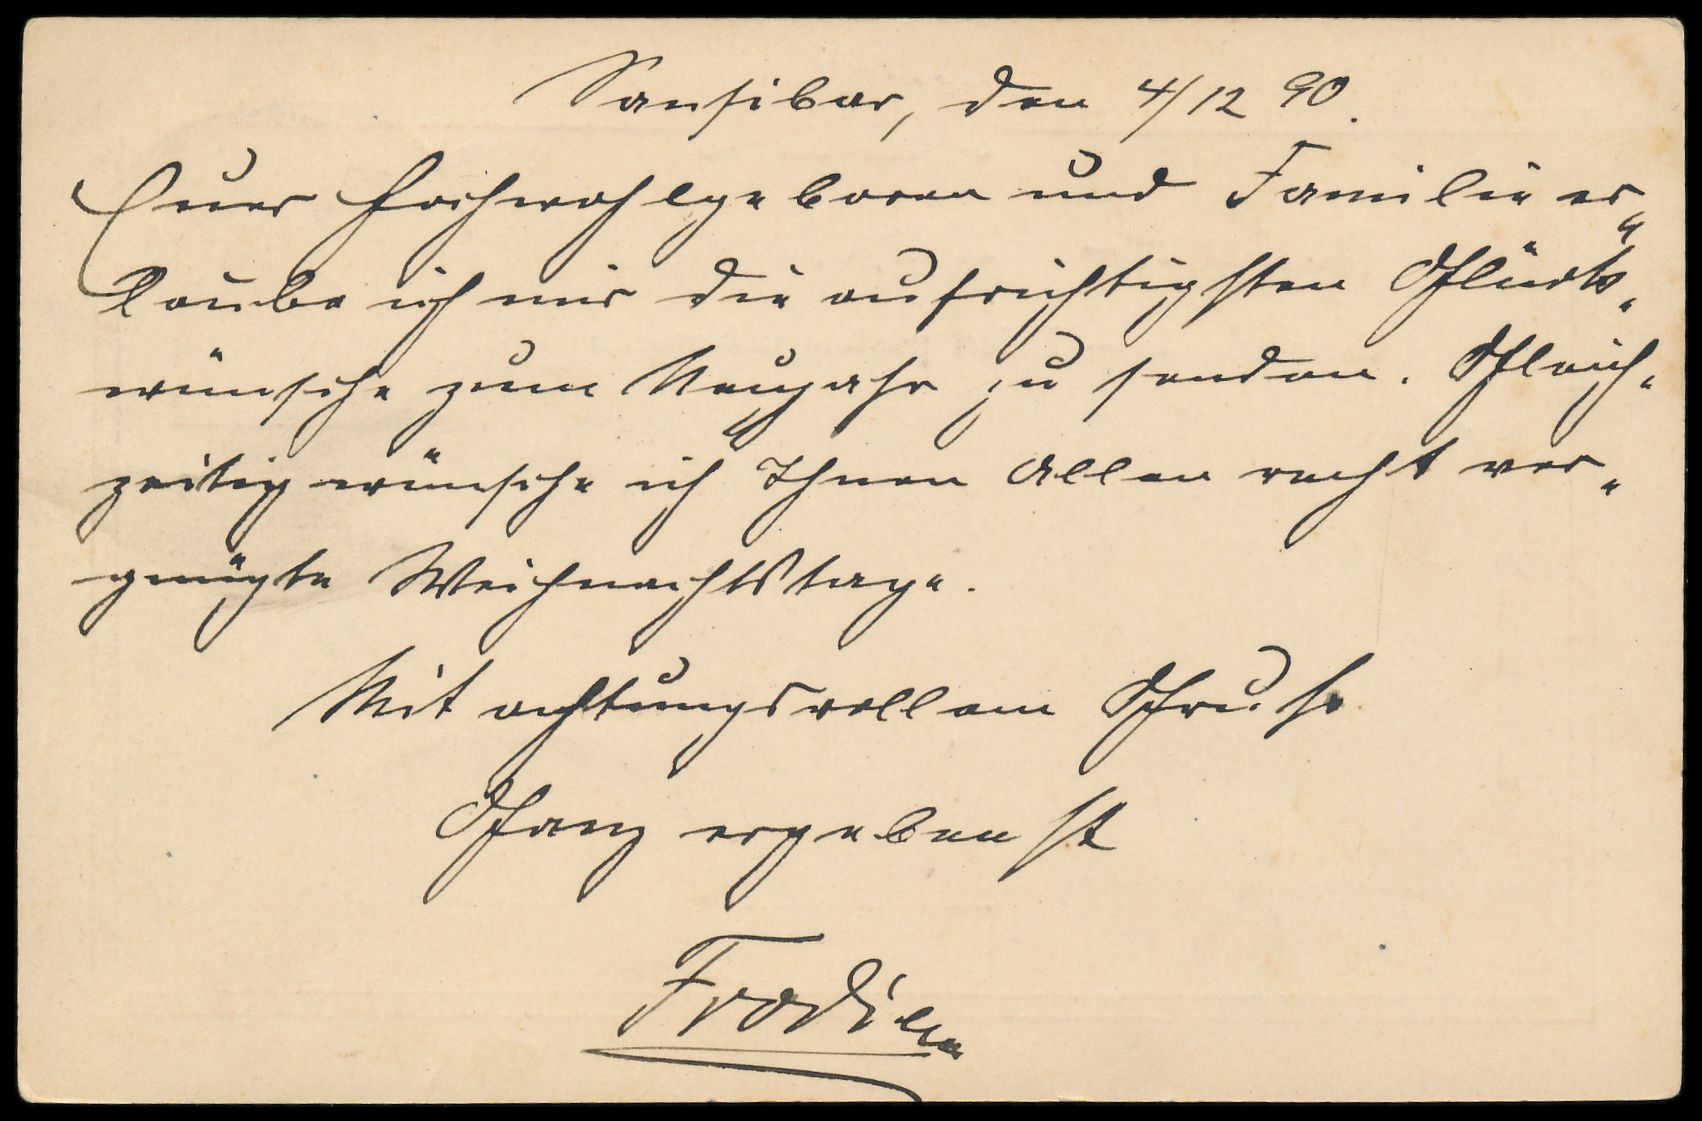 Sansibar, den 4/12 90.
Euer Hochwohlgeboren und Familie er„
laube ich mir die aufrichtigsten Glücks„
wünsche zum Neujahr zu senden. Gleich„
zeitig wünsche ich Ihnen Allen recht ver„
gnügte Weihnachtstage.
Mit achtungsvollem Gruße
Ganz ergebenst